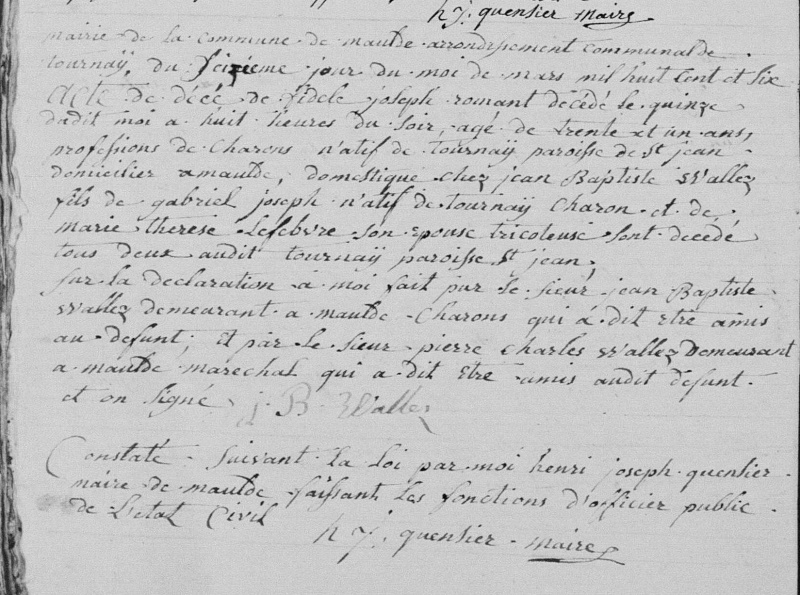 h j. quensier maire
mairie de la commune de maulde arrondissement communal de
tournaÿ, du seizieme jour du moi de mars mil huit cent et six
Acte de décé de fidele joseph romant décédé le quinze
dudit moi a huit heures du soir, agé de trente et un ans,
professions de Charons n'atif de tournaÿ paroisse de st jean
domicilier a maulde, domestique chez jean Baptiste Wallez
fils de gabriel joseph n'atif de tournaÿ Charon et de
marie therese Lefebvre son epouse tricoteuse sont decedé
tous deux audit tournaÿ paroisse st jean,
sur la declaration a moi fait par le sieur jean Baptiste
Wallez demeurant a maulde Charons qui a dit etre amis
au defunt, et par le sieur pierre Charles Wallez Demeurant
a maulde marechal qui a dit etre amis audit defunt
et on signé j. B. Wallez
Constaté suivant la loi par moi henri joseph quensier
maire de maulde faissant les fonctions d'officier public
de L'etat Civil
h j. quensier maire